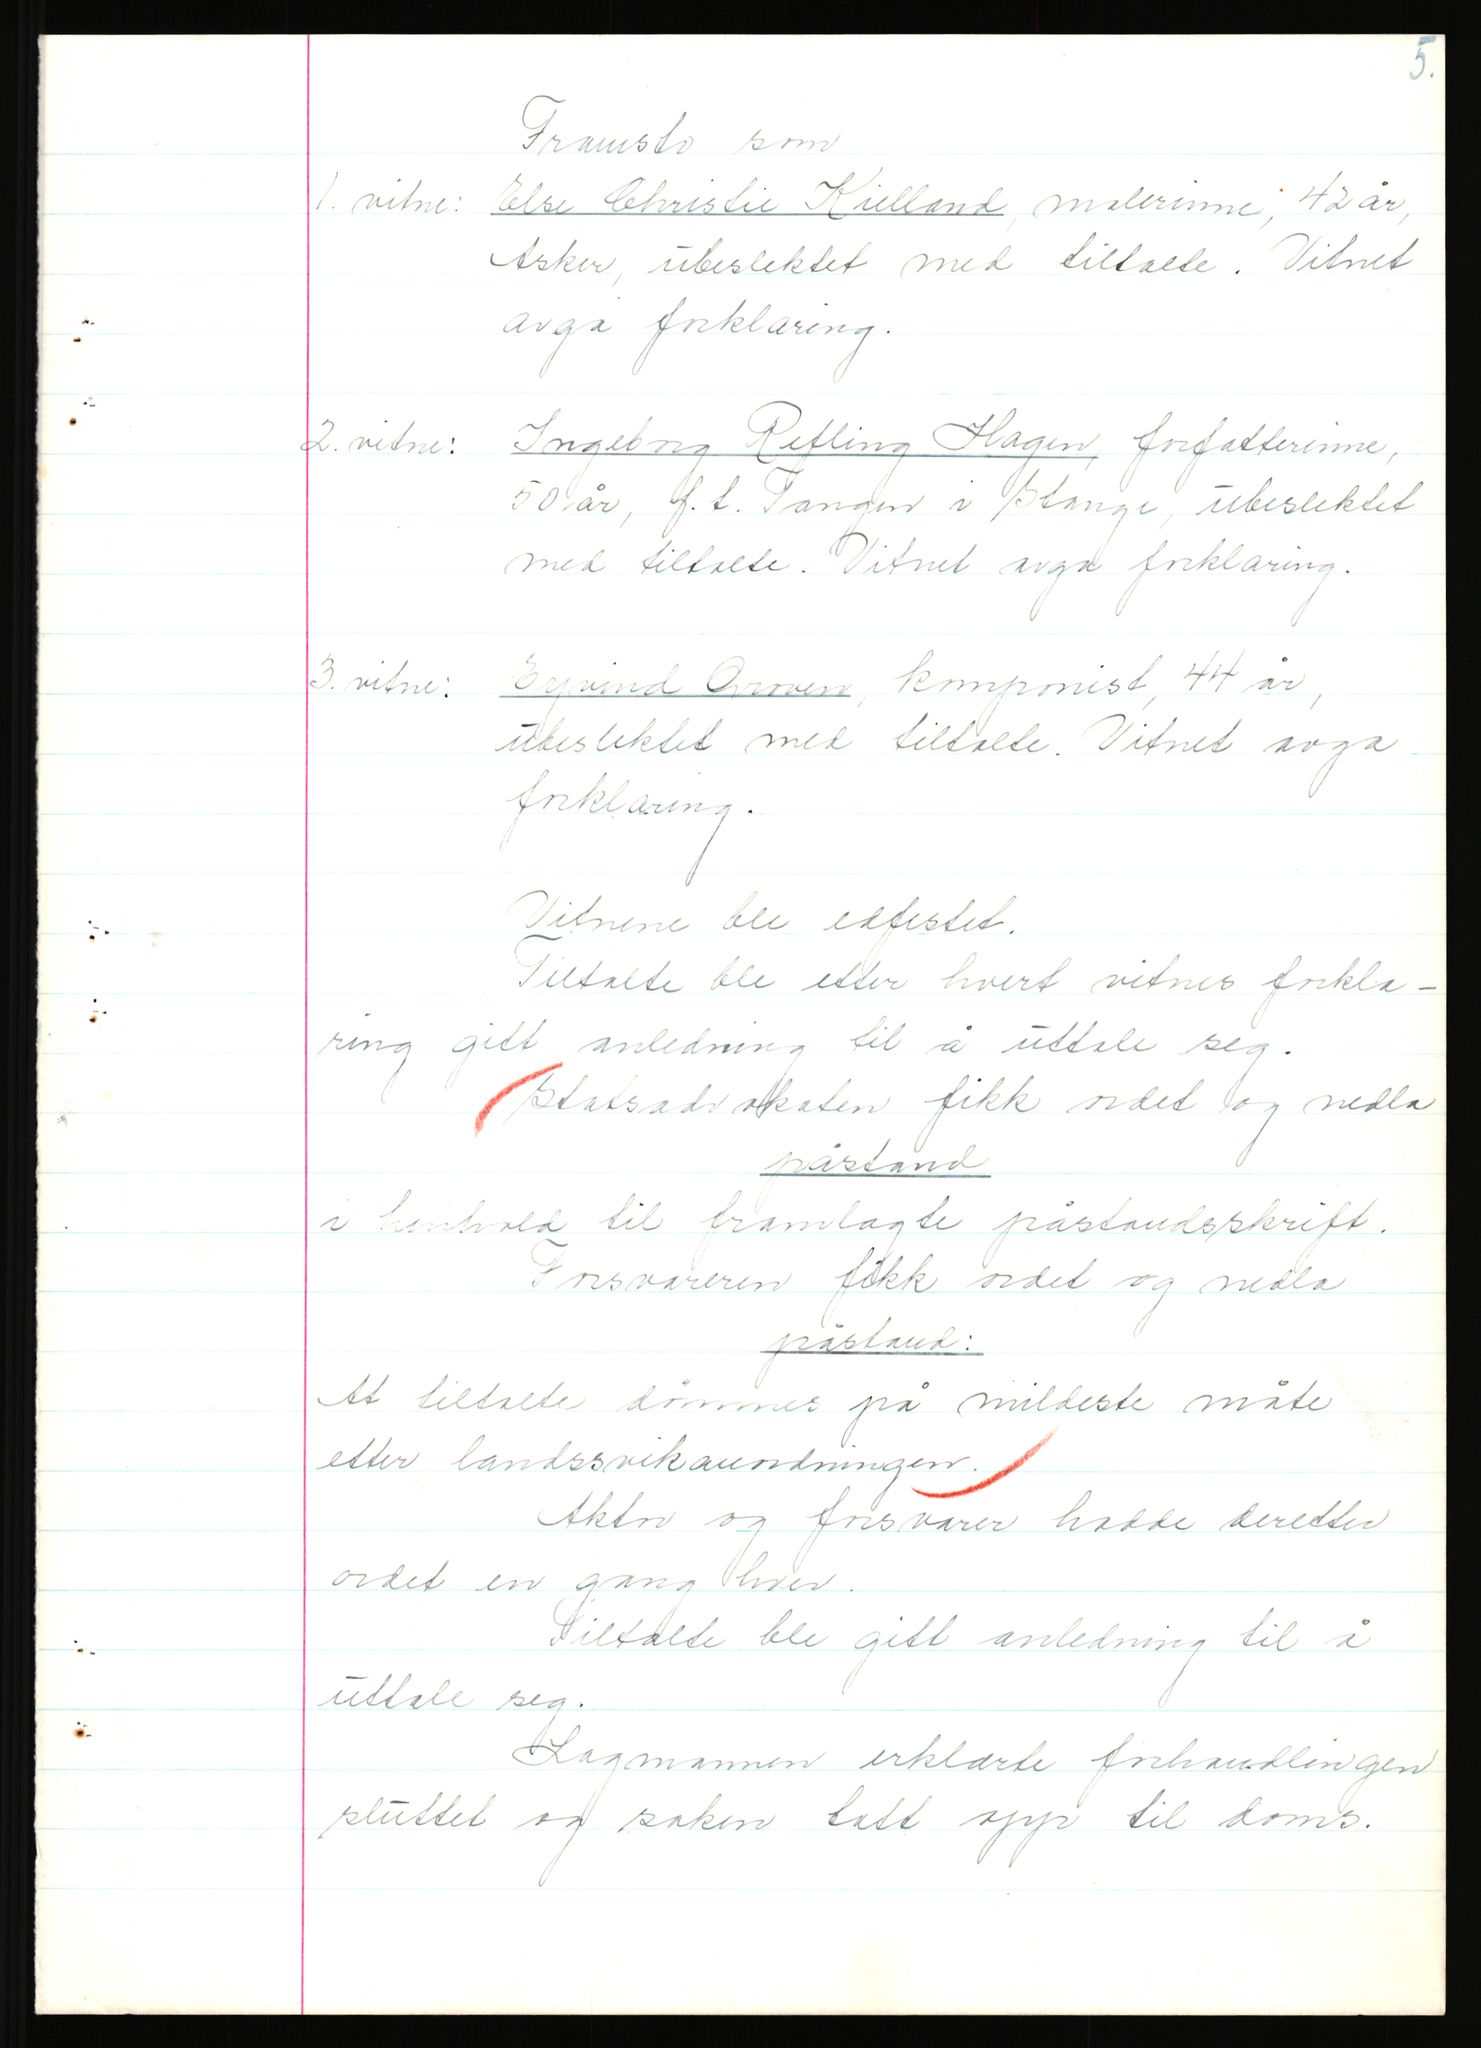 5.
Framsto som
1. vitne: Else Christie Kielland, malerinne, 42 år,
Asker, ubeslektet med tiltalte. Vitnet
avga forklaring.
2. vitne: Ingeborg Refling Hagen, forfatterinne,
50 år, f.t. Tangen i Stange, ubeslektet
med tiltalte. Vitnet avga forklaring.
3. vitne: Eyvind Groven, komponist, 44 år,
ubeslektet med tiltalte. Vitnet avga
forklaring.
Vitnene ble edfestet.
Tiltalte ble etter hvert vitnes forkla-
ring gitt anledning til å uttale seg.
Statsadvokaten fikk ordet og nedla
påstand
i henhold til framlagte påstandsskrift.
Forsvareren fikk ordet og nedla
påstand:
At tiltalte dømmes på mildeste måte
etter landssvikanordningen.
Aktor og forsvarer hadde deretter
ordet en gang hver.
Tiltalte ble gitt anledning til å
uttale seg.
Lagmannen erklærte forhandlingen
sluttet og saken tatt opp til doms.